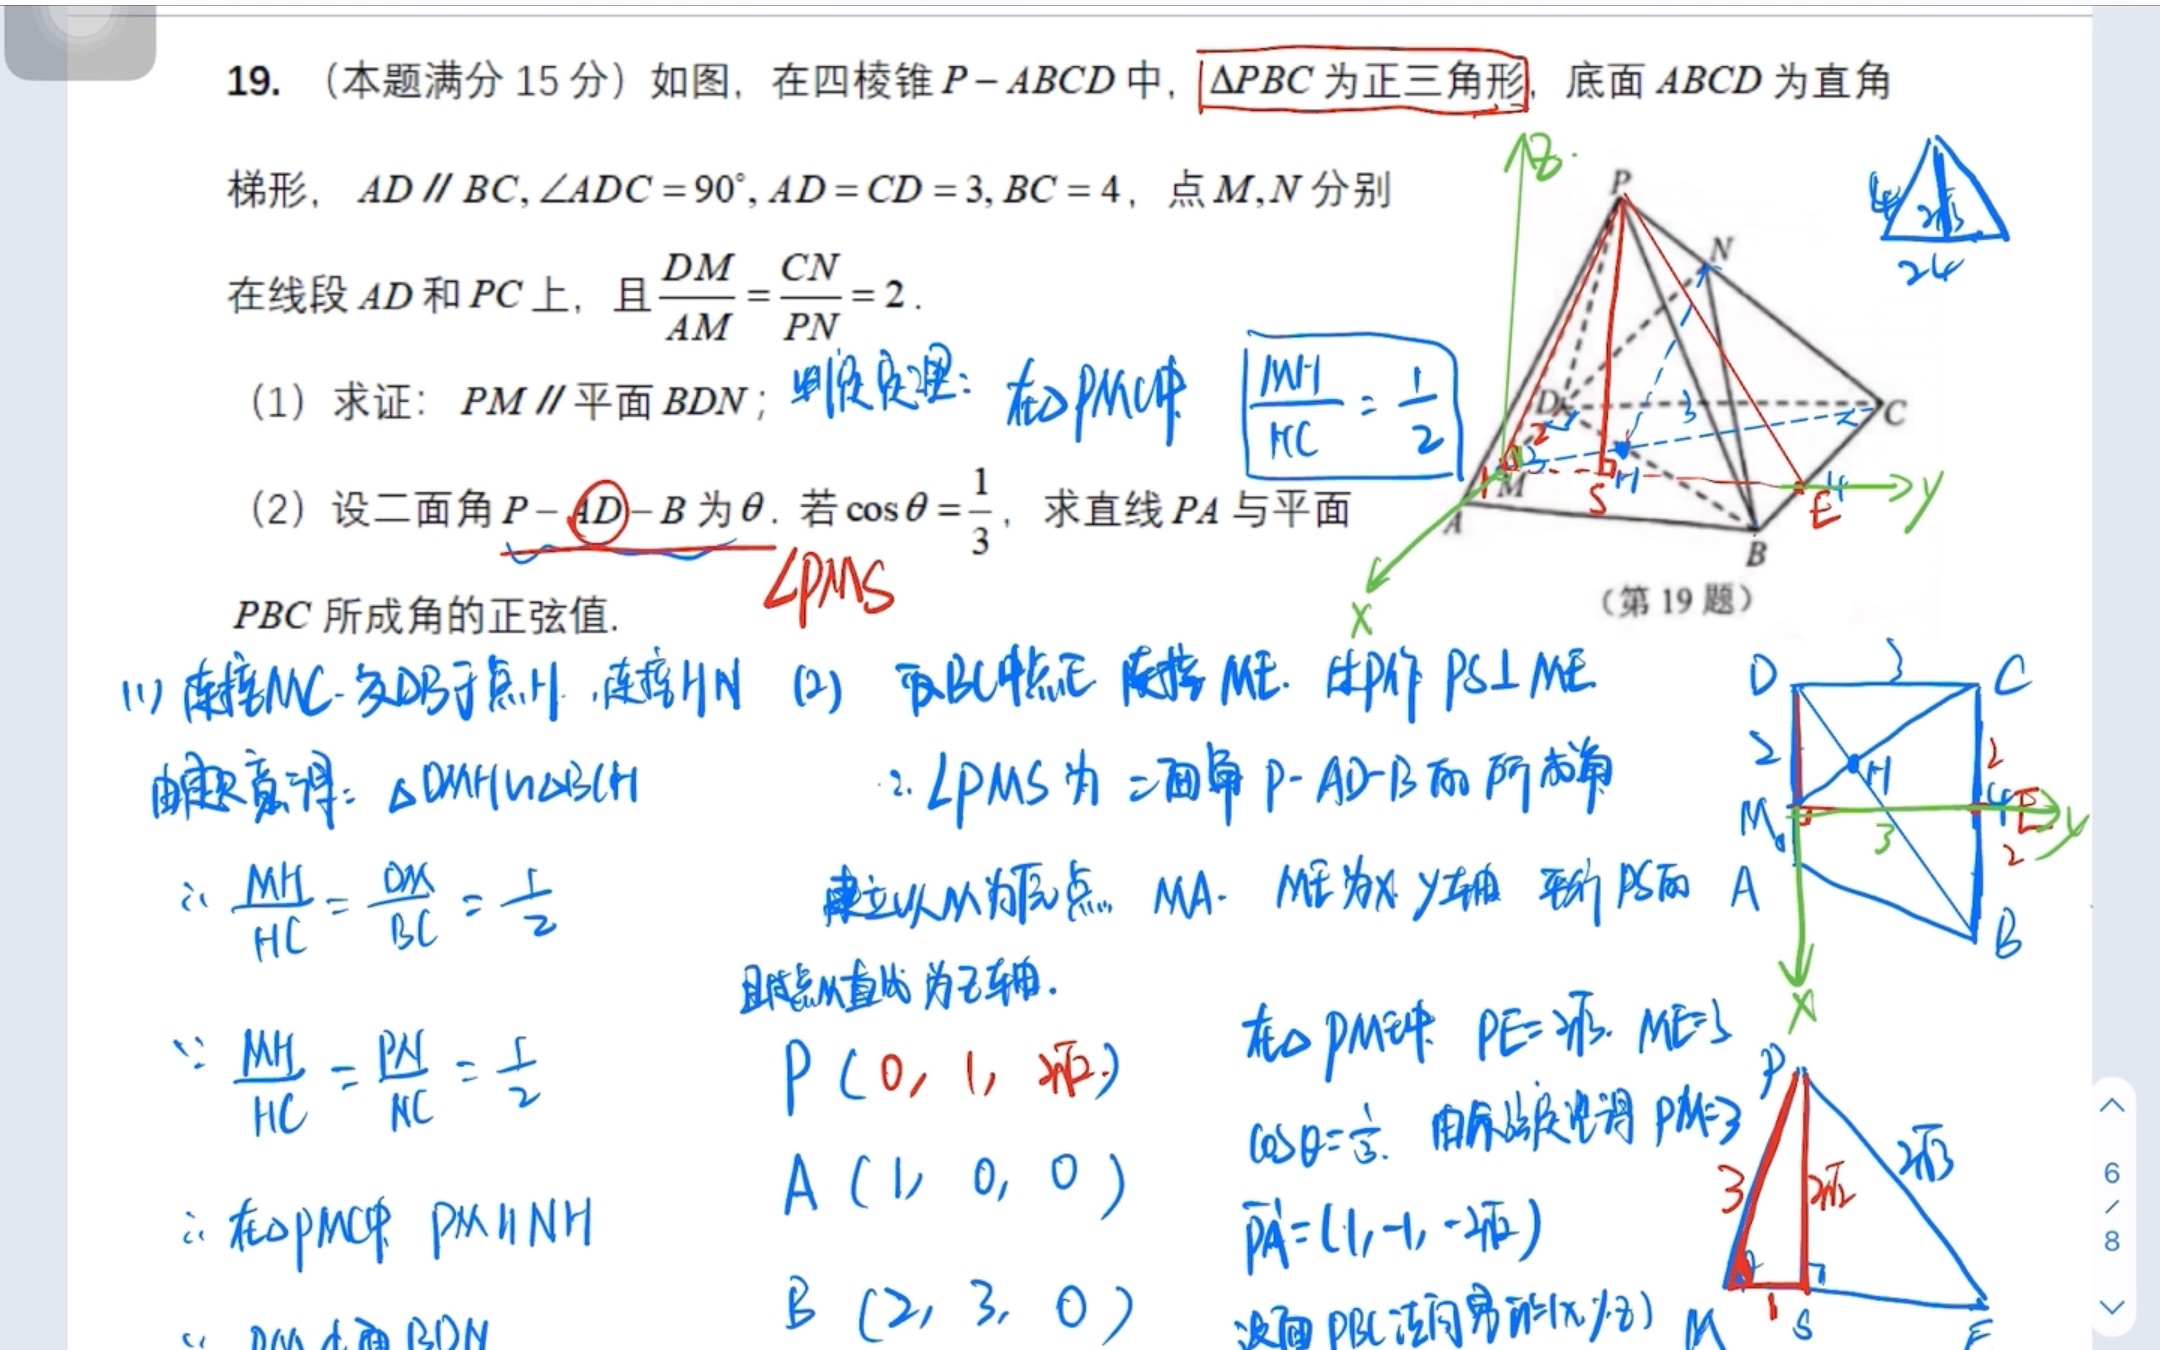 19. （本题满分 15 分）如图，在四棱锥 P－ABCD 中，△PBC 为正三角形，底面 ABCD 为直角
梯形，AD∥BC,∠ADC＝90°,AD＝CD＝3,BC＝4，点 M,N 分别
在线段 AD 和 PC 上，且 DM/AM＝CN/PN＝2．
（1）求证：PM∥平面 BDN；
判定定理：在△PMC中 MH/HC = 1/2
（2）设二面角 P－AD－B 为θ．若 cosθ＝1/3，求直线 PA 与平面
∠PMS
PBC 所成角的正弦值.
Z
P
N
D
3
C
2
2
3
1
M
S
H
E
4
y
A
B
x
（第 19 题）
4
2√3
24
(1) 连接MC.交DB于点H.连接HN
由题意得：△DMH∽△BCH
∴ MH/HC = DM/BC = 1/2
∵ MH/HC = PN/NC = 1/2
∴ 在△PMC中 PM∥NH
BDN
(2) 取BC中点E 连接ME. 过P作 PS⊥ME
∴ ∠PMS为二面角P-AD-B的所成角
建立以M为原点 MA. ME为x.y轴 平行PS的
且过点M直线为z轴.
P (0, 1, 2√2)
A (1, 0, 0)
B (2, 3, 0)
在△PME中 PE=2√3. ME=3
cosθ=1/3. 由余弦定理得 PM=3
PA=(1,-1,-2√2)
设面PBC法向量 (x,y,z)
D
3
C
2
2
H
M
3
4
E
y
2
A
B
X
P
3
2√2
2√3
M
1
S
E
6
/
8